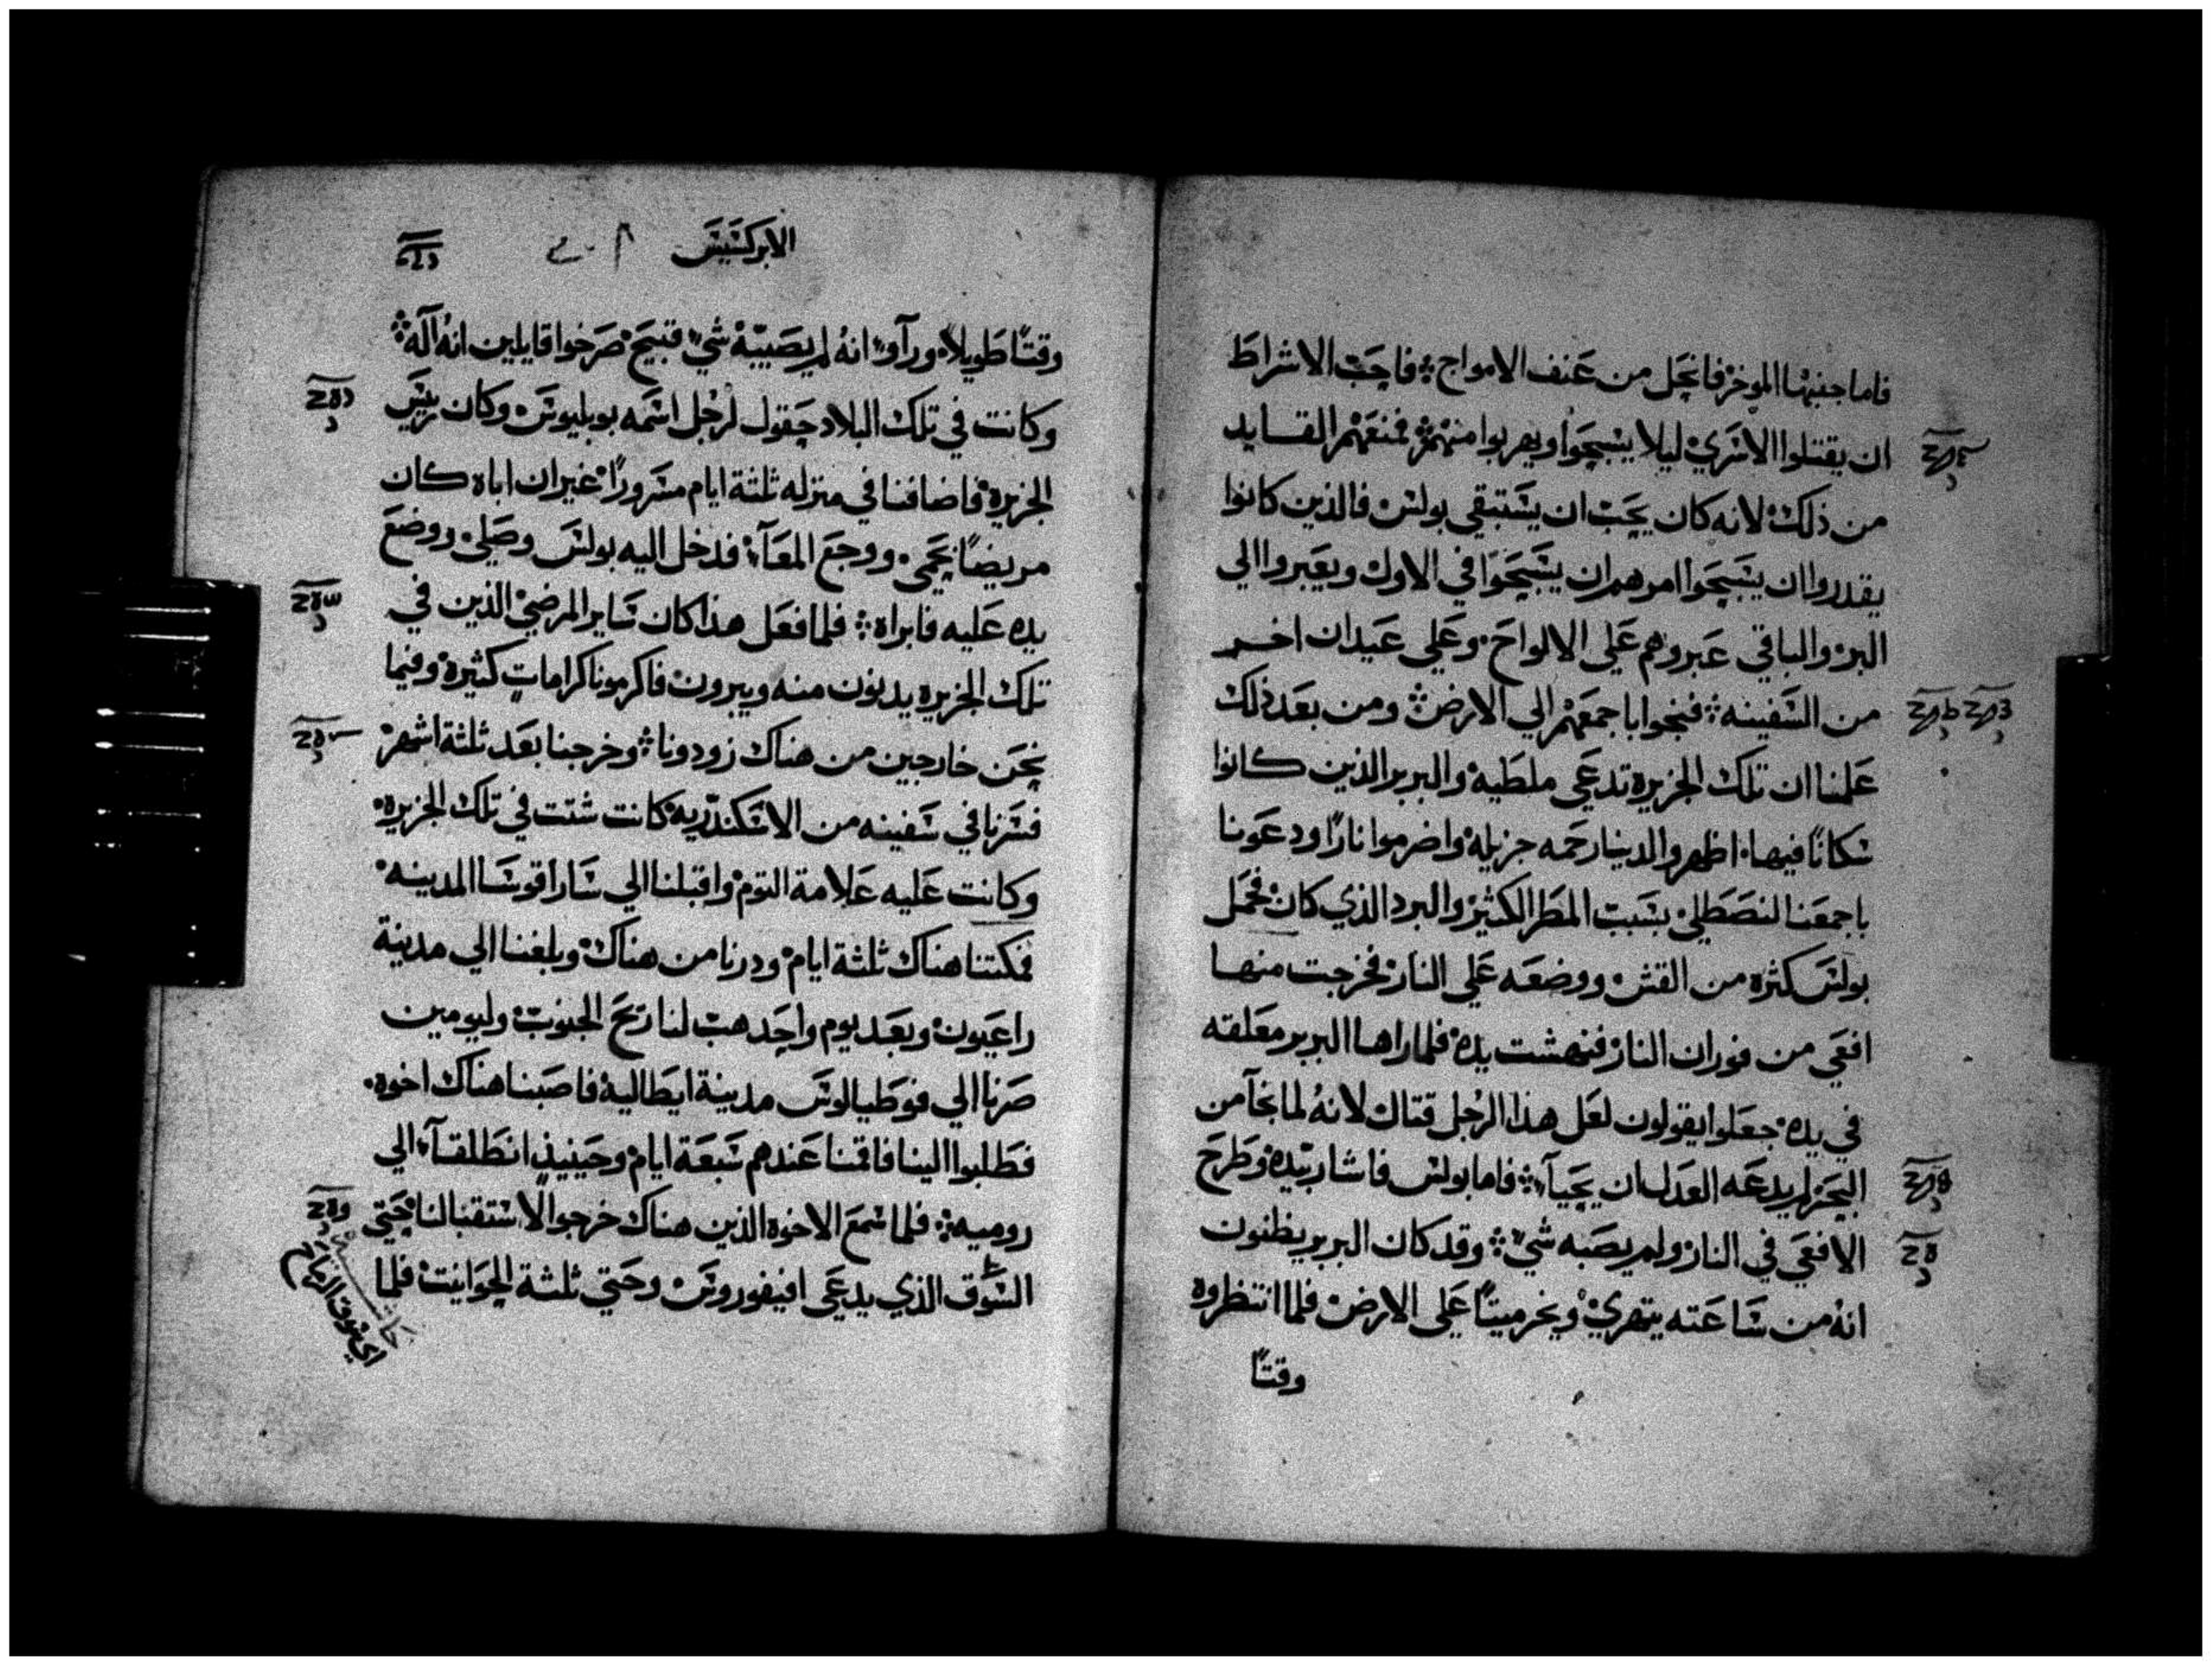 فاما جنبها الموخر فانحل من عنف الامواج فاحب الاشراط
ان يقتلوا الاسري ليلا يسبحوا ويهربوا منهم فمنعهم القايد
من ذلك لانه كان يحب ان يستبقي بولس فالذين كانوا
يقدروا ان يسبحوا امرهم ان يسبحوا في الاول ويعبروا الي
البر والباقي عبروهم علي الالواح وعلي عيدان اخر
من السفينه فنجوا باجمعهم الي الارض ومن بعد ذلك
علمنا ان تلك الجزيره تدعي ملطيه والبربر الذين كانوا
سكانًا فيها اظهروا لدينا رحمه جزيله واضرموا نارًا ودعونا
باجمعنا لنصطلي بسبب المطر الكثير والبرد الذي كان فحمل
بولس كثره من القش ووضعه علي النار فخرجت منها
افعي من فوران النار فنهشت يده فلما راها البربر معلقه
في يده جعلوا يقولون لعل هذا الرجل قتال لانهُ لما نجآ من
البحر لم يدعه العدل ان يحيآ فاما بولس فاشار بيده وطرح
الافعي في النار ولم يصبه شي وقد كان البربر يظنون
انه من ساعته يتهري ويخر ميتًا علي الارض فلما انتظروه
وقتًا
الابركسيس
وقتًا طويلاً وراَوا انهُ لم يصيبهُ شي قبيح صرخوا قايلين انهُ الَه
وكانت في تلك البلاد حقول لرجل اسمه بوبليوس وكان رييس
الجزيرة فاضافنا في منزله ثلثة ايام مسرورًا غير ان اباه كان
مريضًا بحمي ووجع المعآ فدخل اليه بولس وصلي ووضع
يده عليه فابراه فلما فعل هذا كان ساير المرضي الذين في
تلك الجزيره يدنون منه ويبرون فاكرمونا كراماتٍ كثيرة وفيما
نحن خارجين من هناك زودونا وخرجنا بعد ثلثة اشهر
فسرنا في سفينه من الاسكندريه كانت شتت في تلك الجزيره
وكانت عليه علامة التوم واقبلنا الي ساراقوسا المدينه
فمكثنا هناك ثلثة ايام ودرنا من هناك وبلغنا الي مدينة
راغيون وبعد يوم واحد هبت لنا ريح الجنوب وليومين
صرنا الي فوطيالوس مدينة ايطاليه فاصبنا هناك اخوه
فطلبوا الينا فاقمنا عندهم سبعة ايام وحينيذٍ انطلقنآ الي
روميه فلما سمع الاخوه الذين هناك خرجوا لاستقبالنا حتي
السوق الذي يدعي افيفوروس وحتي ثلثة الحوانيت فلما